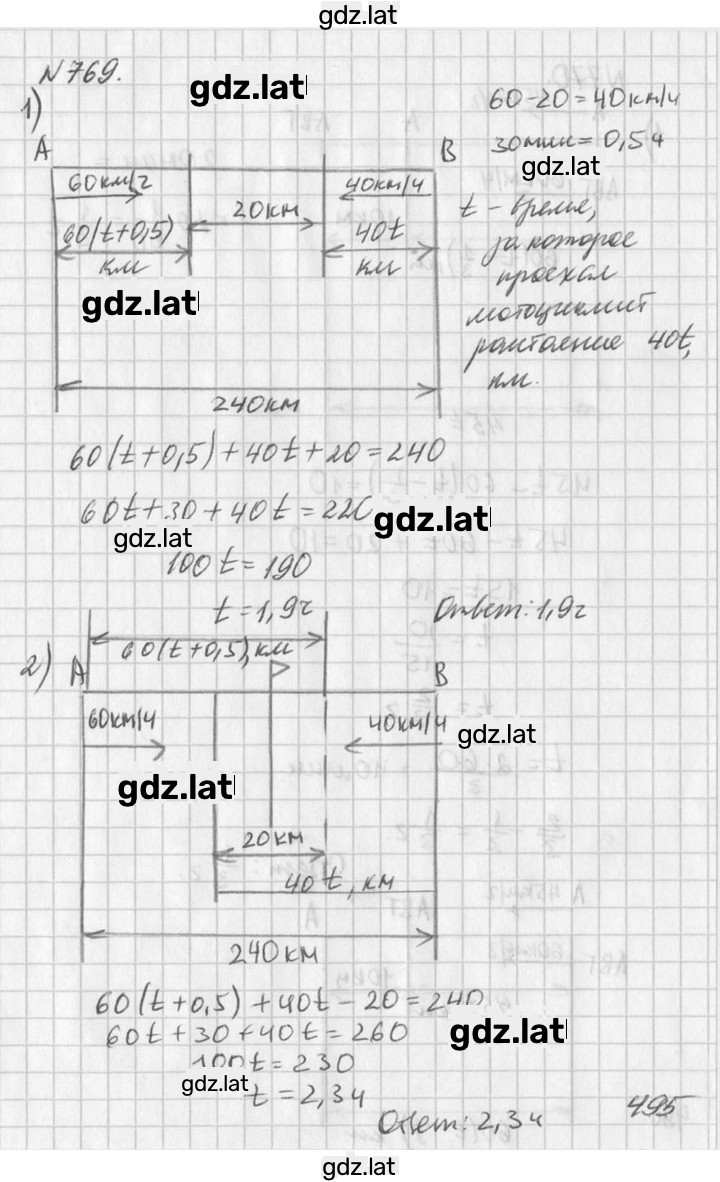 gdz.lat
N769.
gdz.lat
60-20=40км/ч
1)
30мин=0,5ч
A
B
gdz.lat
60км/ч
40км/ч
t - время,
20км
60(t+0,5)
40t
за которое
км
км
проехал
gdz.lat
мотоциклист
расстояние 40t,
км.
240км
60(t+0,5)+40t+20=240
60t+30+40t=220
gdz.lat
gdz.lat
100t=190
t=1,9ч
Ответ: 1,9ч
60(t+0,5),км
2)
A
B
60км/ч
40км/ч
gdz.lat
gdz.lat
20км
40t, км
240км
60(t+0,5)+40t-20=240
60t+30+40t=260
gdz.lat
100t=230
gdz.lat
t=2,3ч
Ответ: 2,3ч
495
gdz.lat